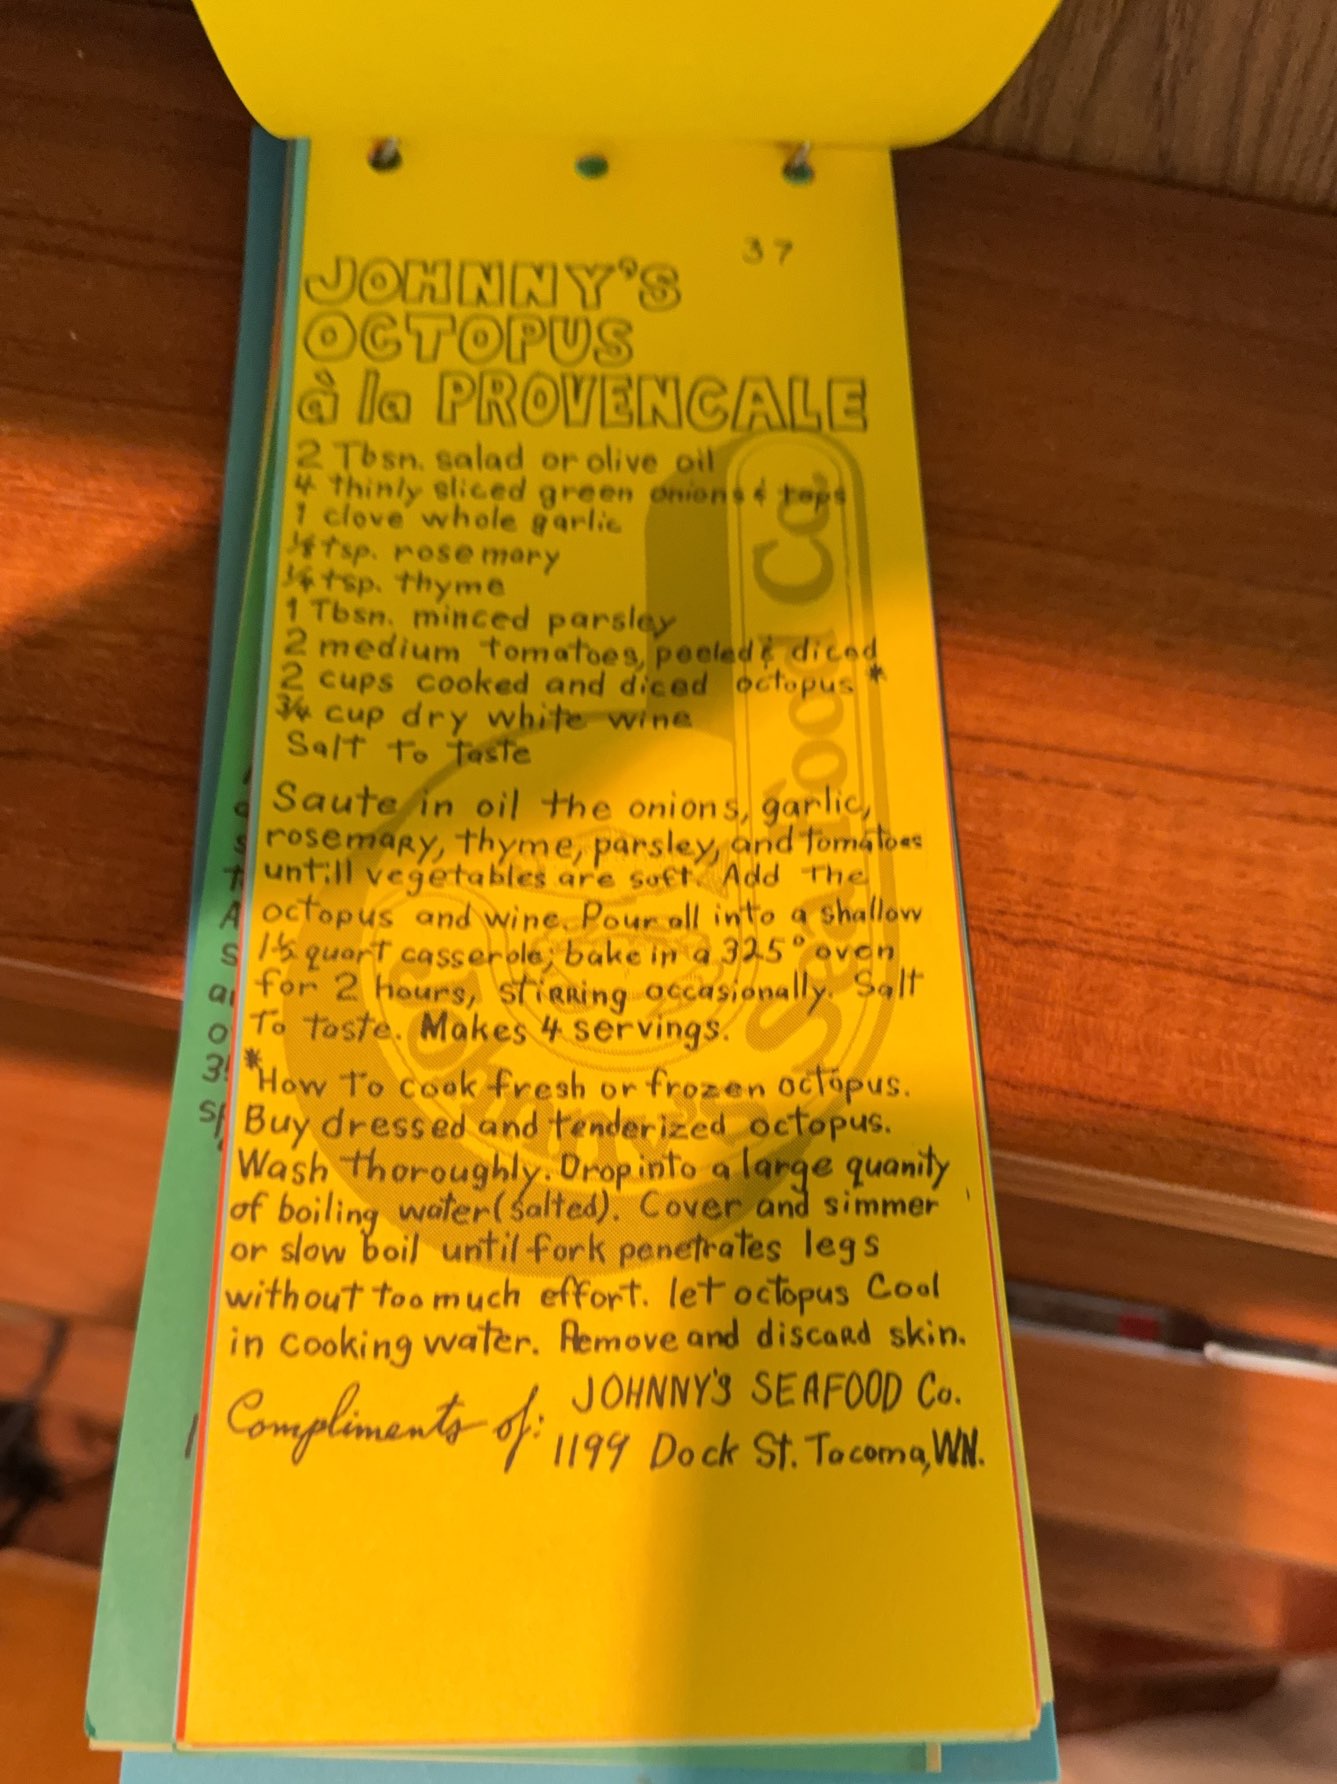 37
JOHNNY'S
OCTOPUS
à la PROVENCALE
2 Tbsn. salad or olive oil
4 thinly sliced green onions & tops
1 clove whole garlic
1/8 tsp. rosemary
1/4 tsp. thyme
1 Tbsn. minced parsley
2 medium tomatoes, peeled & diced
2 cups cooked and diced octopus *
3/4 cup dry white wine
Salt To Taste
Saute in oil the onions, garlic,
rosemary, thyme, parsley, and tomatoes
untill vegetables are soft. Add the
octopus and wine. Pour all into a shallow
1 1/2 quart casserole; bake in a 325° oven
for 2 hours, stirring occasionally. Salt
To taste. Makes 4 servings.
*How To cook fresh or frozen octopus.
Buy dressed and tenderized octopus.
Wash thoroughly. Drop into a large quanity
of boiling water (salted). Cover and simmer
or slow boil until fork penetrates legs
without too much effort. let octopus Cool
in cooking water. Remove and discard skin.
Compliments of: JOHNNY'S SEAFOOD Co.
1199 Dock St. Tacoma, WN.
Johnny's Seafood Co.